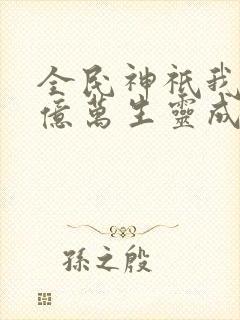 全民神祇我
億萬生靈成
孫之殷